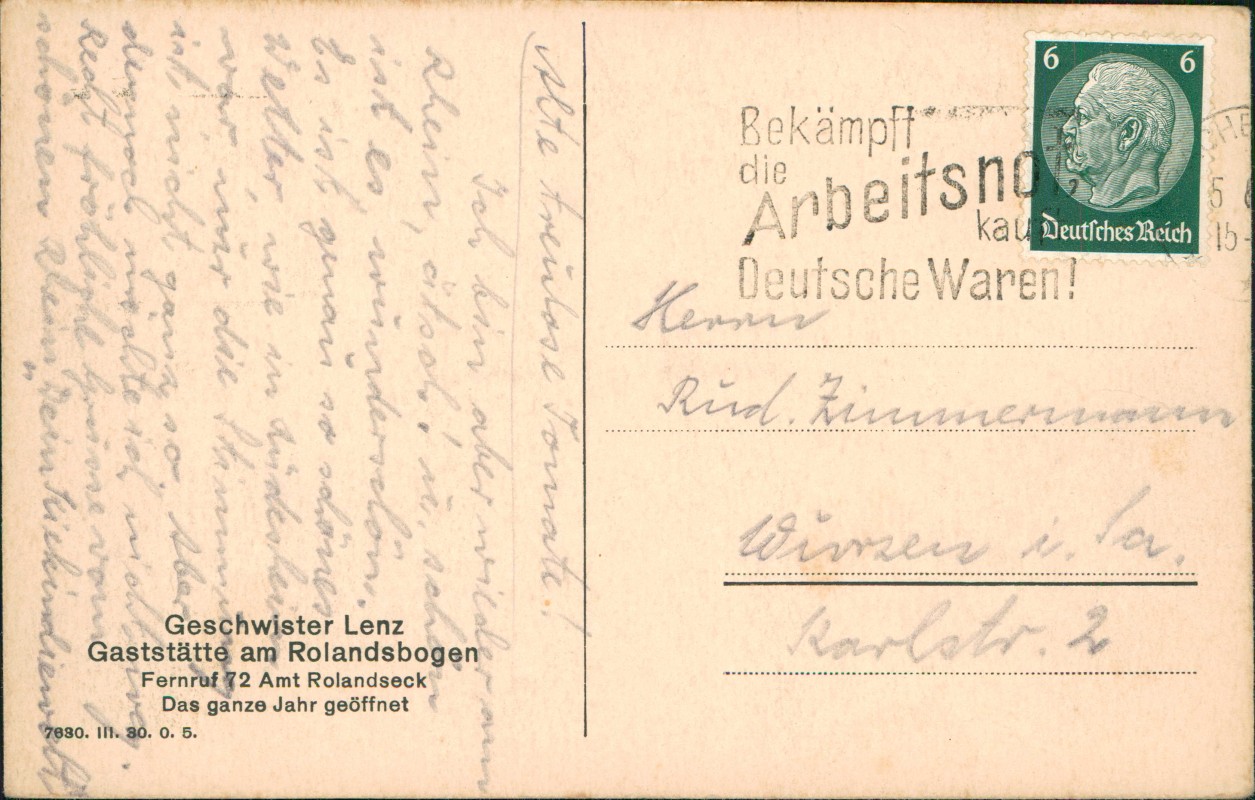 Alte treulose Tomate!
Ich bin aber wieder am
Rhein, ätsch! u. schön
ist es, wunderschön.
Es ist genau so schönes
Wetter, wie in Rüdesheim
war, nur die Stimmung
ist nicht ganz so. Aber
dennoch möchte ich nicht weg.
Recht fröhliche Grüsse vom
schönen Rhein Dein
Geschwister Lenz
Gaststätte am Rolandsbogen
Fernruf 72 Amt Rolandseck
Das ganze Jahr geöffnet
7630. III. 30. 0. 5.
6 6
Deutsches Reich
Bekämpft
die
Arbeitsnot,
kauft
Deutsche Waren!
Herrn
Rud. Zimmermann
Wurzen i. Sa.
Karlstr. 2